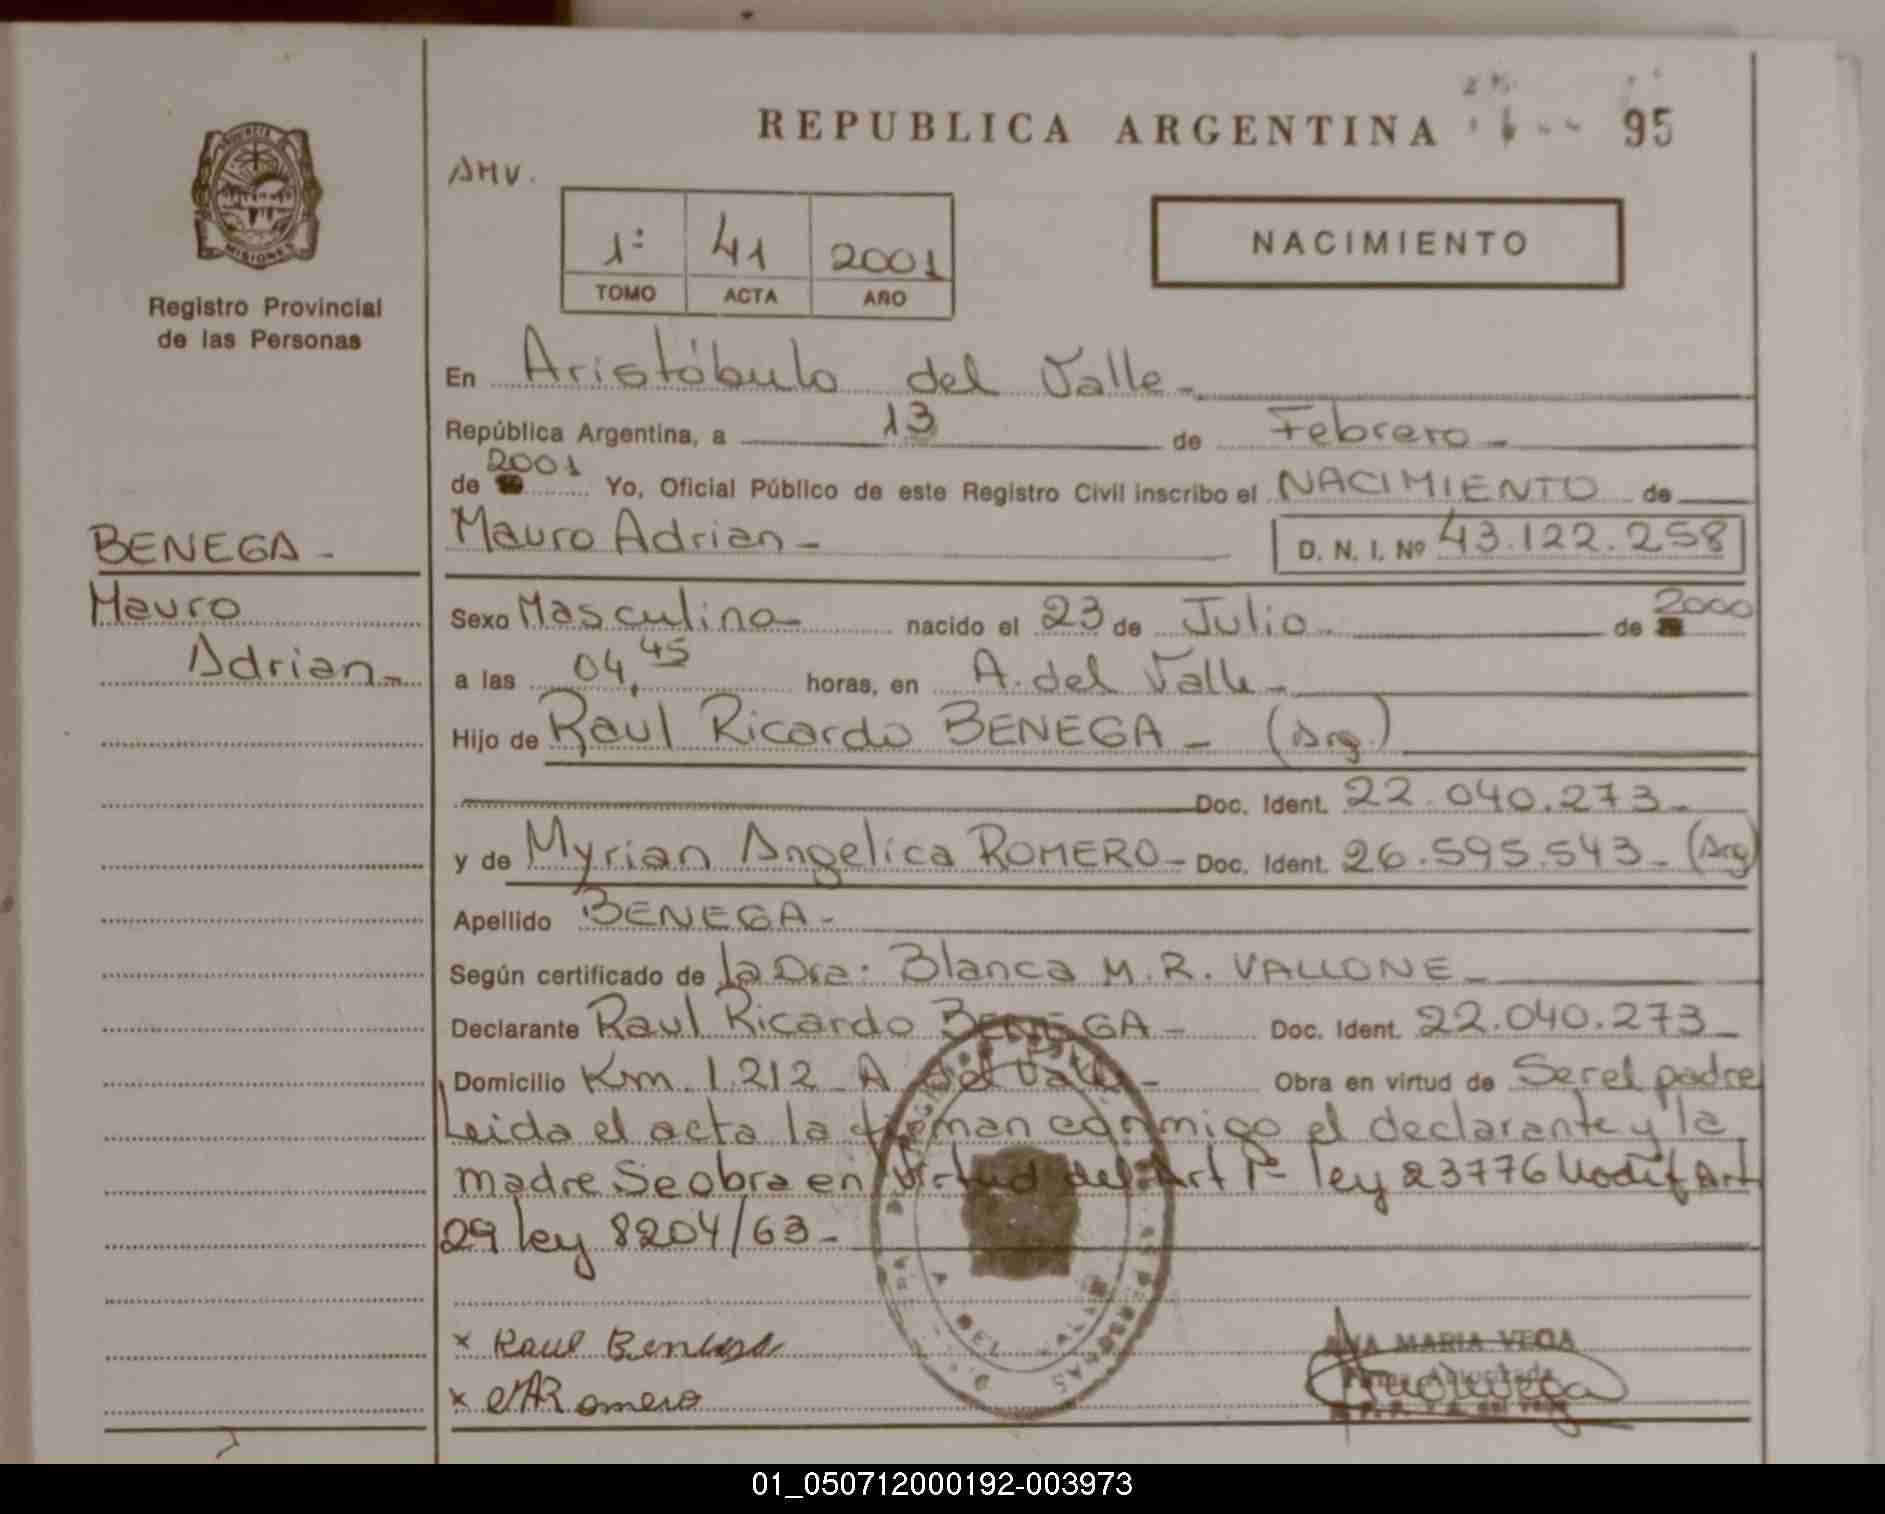 REPUBLICA ARGENTINA
95
AMV.
PROVINCIA
MISIONES
Registro Provincial
de las Personas
1º 41 2001
TOMO ACTA AÑO
NACIMIENTO
En Aristóbulo del Valle-
República Argentina, a 13 de Febrero-
de 2001 Yo, Oficial Público de este Registro Civil inscribo el NACIMIENTO de
Mauro Adrian- D. N. I. Nº 43.122.258
BENEGA-
Mauro
Adrian-
Sexo Masculino- nacido el 23 de Julio- de 2000
a las 04,45 horas, en A. del Valle-
Hijo de Raúl Ricardo BENEGA- (Arg.)
Doc. Ident. 22.040.273-
y de Myrian Angelica ROMERO- Doc. Ident. 26.595.543- (Arg)
Apellido BENEGA-
Según certificado de la Dra: Blanca M.R. VALLONE-
Declarante Raul Ricardo BENEGA- Doc. Ident. 22.040.273-
Domicilio Km. 1.212 A del Valle- Obra en virtud de Ser el padre
Leida el acta la firman conmigo el declarante y la
madre Se obra en virtud del Art 1º ley 23776 Modif Art
29 ley 8204/63-
x Raul Benega
x MARomero
ANA MARIA VEGA
Firma Autorizada
A. del Valle
01_050712000192-003973